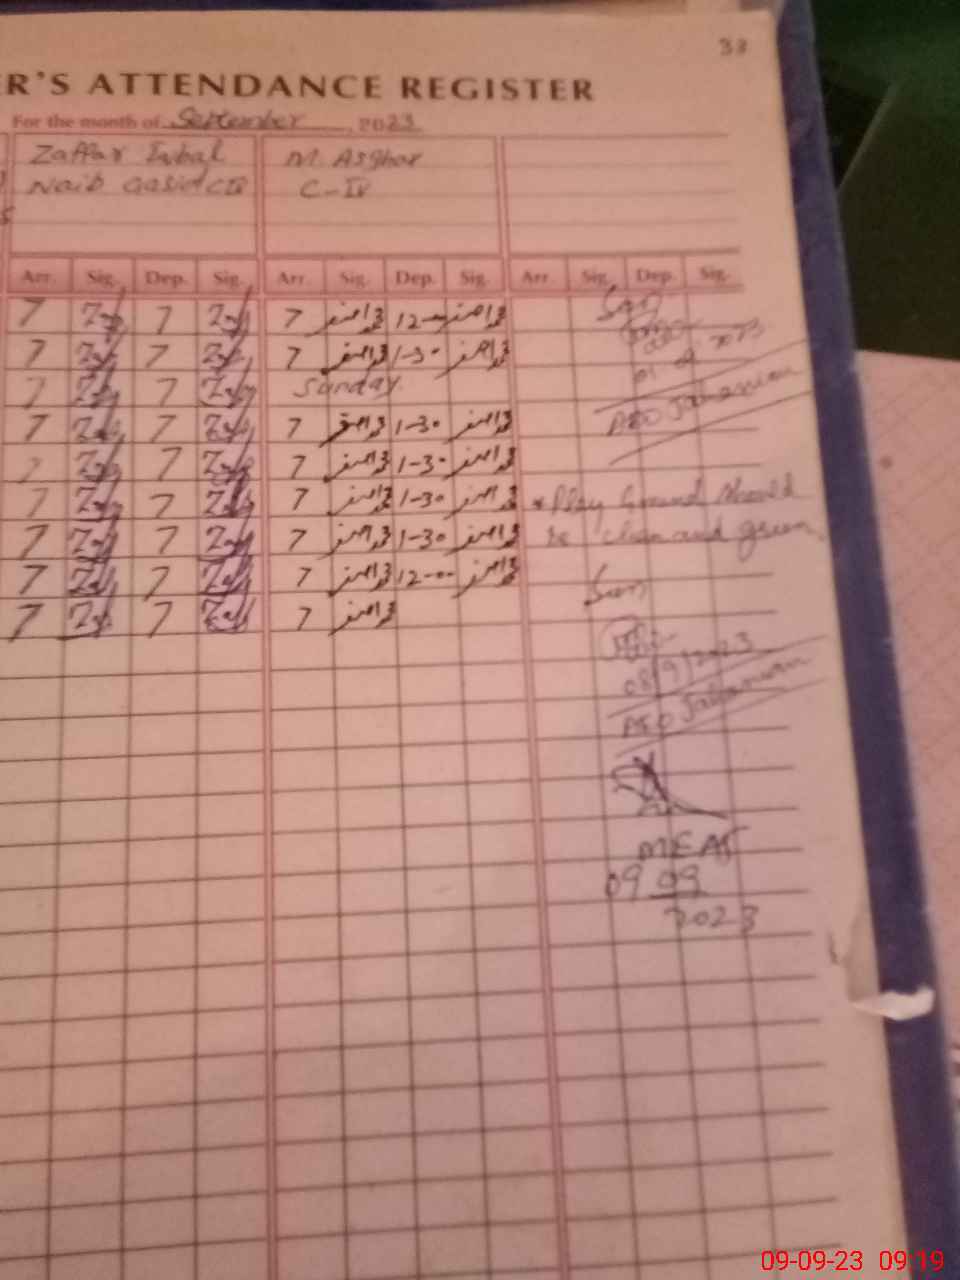 33
ER'S ATTENDANCE REGISTER
For the month of September, 2023
Zaffar Iqbal M. Asghar
Naib Qasid C IV C-IV
Arr. Sig. Dep. Sig. Arr. Sig. Dep. Sig. Arr. Sig. Dep. Sig.
7 7 7 محمد اصغر 12-00 محمد اصغر
7 7 7 محمد اصغر 1-30 محمد اصغر
7 7 Sunday
7 7 7 محمد اصغر 1-30 محمد اصغر
7 7 7 محمد اصغر 1-30 محمد اصغر
7 7 7 محمد اصغر 1-30 محمد اصغر
7 7 7 محمد اصغر 1-30 محمد اصغر
7 7 7 محمد اصغر 12-00 محمد اصغر
7 7 7 محمد اصغر
Seen
2023
AEO Jahanian
* Play Ground should
be clean and green
Seen
08/9/2023
AEO Jahanian
MEA
09 09
2023
09-09-23 09:19